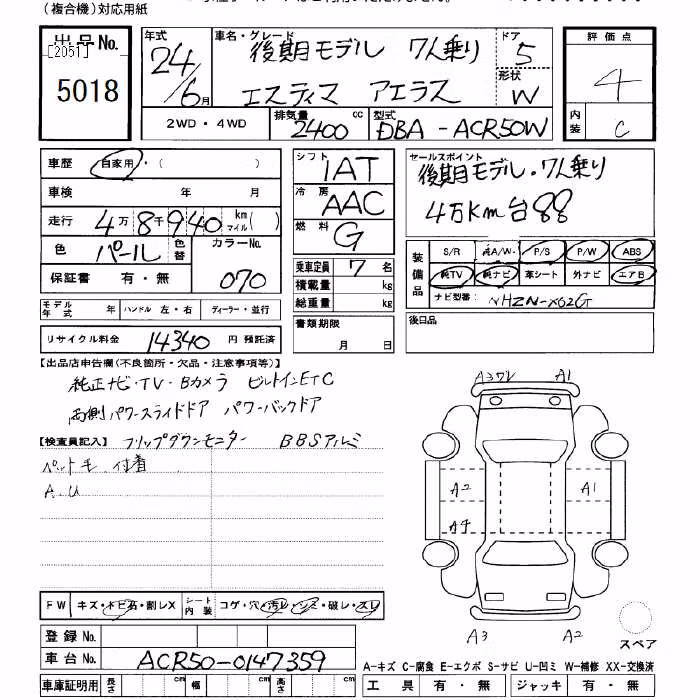 (複合機)対応用紙
出品No. [2051] 5018
年式 24/6月
車名・グレード 後期モデル 7人乗り エスティマ アエラス
ドア 5
形状 W
評価点 4
内装 C
2WD・4WD
排気量 2400 cc
型式 DBA-ACR50W
車歴 自家用・( )
車検 年 月
走行 4万8千940 km マイル( )
色 パール 色替 カラーNo. 070
保証書 有・無
モデル年式 年 ハンドル 左・右 ディーラー・並行
リサイクル料金 14340 円 預託済
シフト IAT
冷房 AAC
燃料 G
乗車定員 7 名
積載量 kg
総重量 kg
書類期限 月 日
セールスポイント
後期モデル・7人乗り
4万Km台
装備品 S/R 純A/W P/S P/W ABS
純TV 純ナビ 革シート 外ナビ エアB
ナビ型番 NHZN-X62G
後日品
【出品店申告欄(不良箇所・欠品・注意事項等)】
純正ナビ・TV・Bカメラ ビルトインETC
両側パワースライドドア パワーバックドア
【検査員記入】 フリップダウンモニター BBSアルミ
ペット毛 付着
A.U
A1
A2
A1
A3
A2
スペア
FW キズ・トビ石・割レX シート内装 コゲ・穴・汚レ・シミ・破レ・スレ
登録No.
車台No. ACR50-0147359
A-キズ C-腐食 E-エクボ S-サビ U-凹ミ W-補修 XX-交換済
車庫証明用 長さ cm 幅 cm 高さ cm 工具 有・無 ジャッキ 有・無